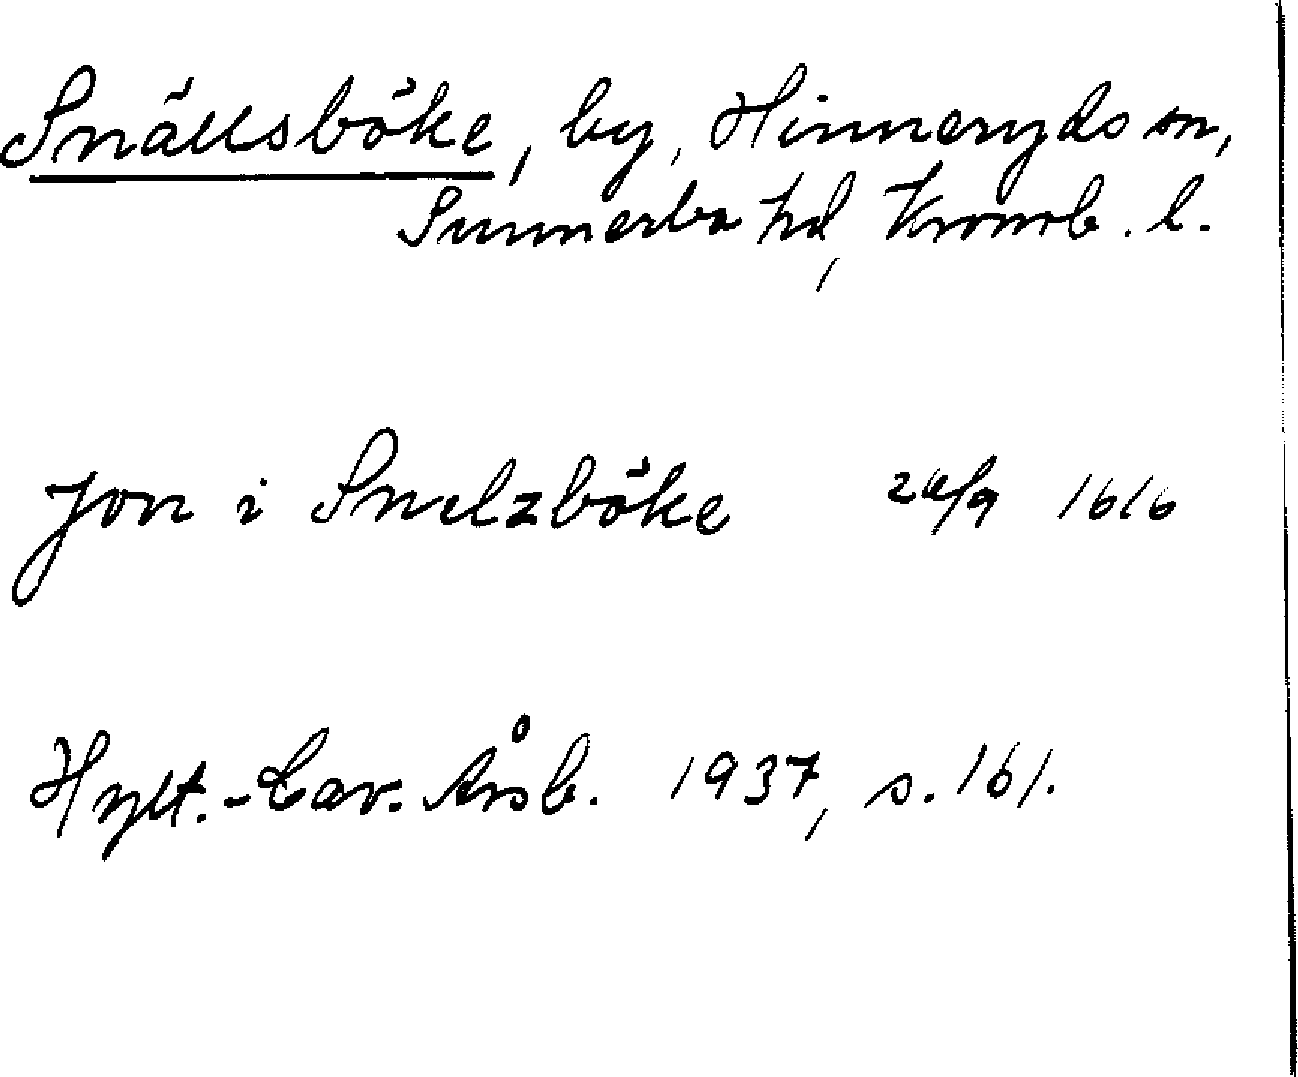 Snällsböke, by, Hinneryds sn,
Sunnerbo hd, Kronob. l.
Jon i Snelzböke 24/9 1616
Hylt.-Cav. Årsb. 1937, s. 161.